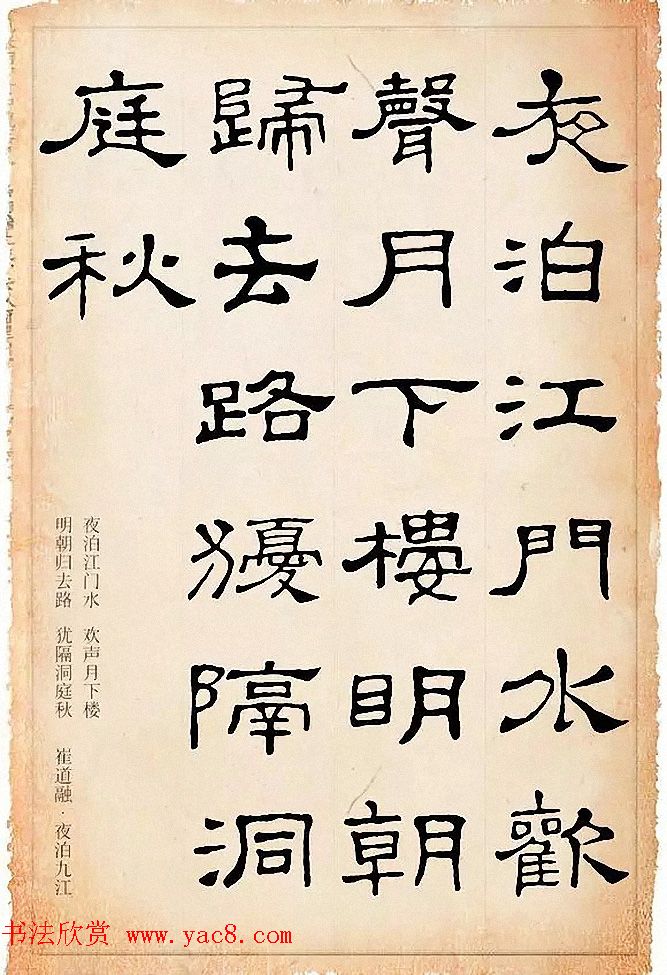 夜泊江門水歡
聲月下樓明朝
歸去路猶隔洞
庭秋
夜泊江门水 欢声月下楼
明朝归去路 犹隔洞庭秋 崔道融·夜泊九江
书法欣赏 www.yac8.com